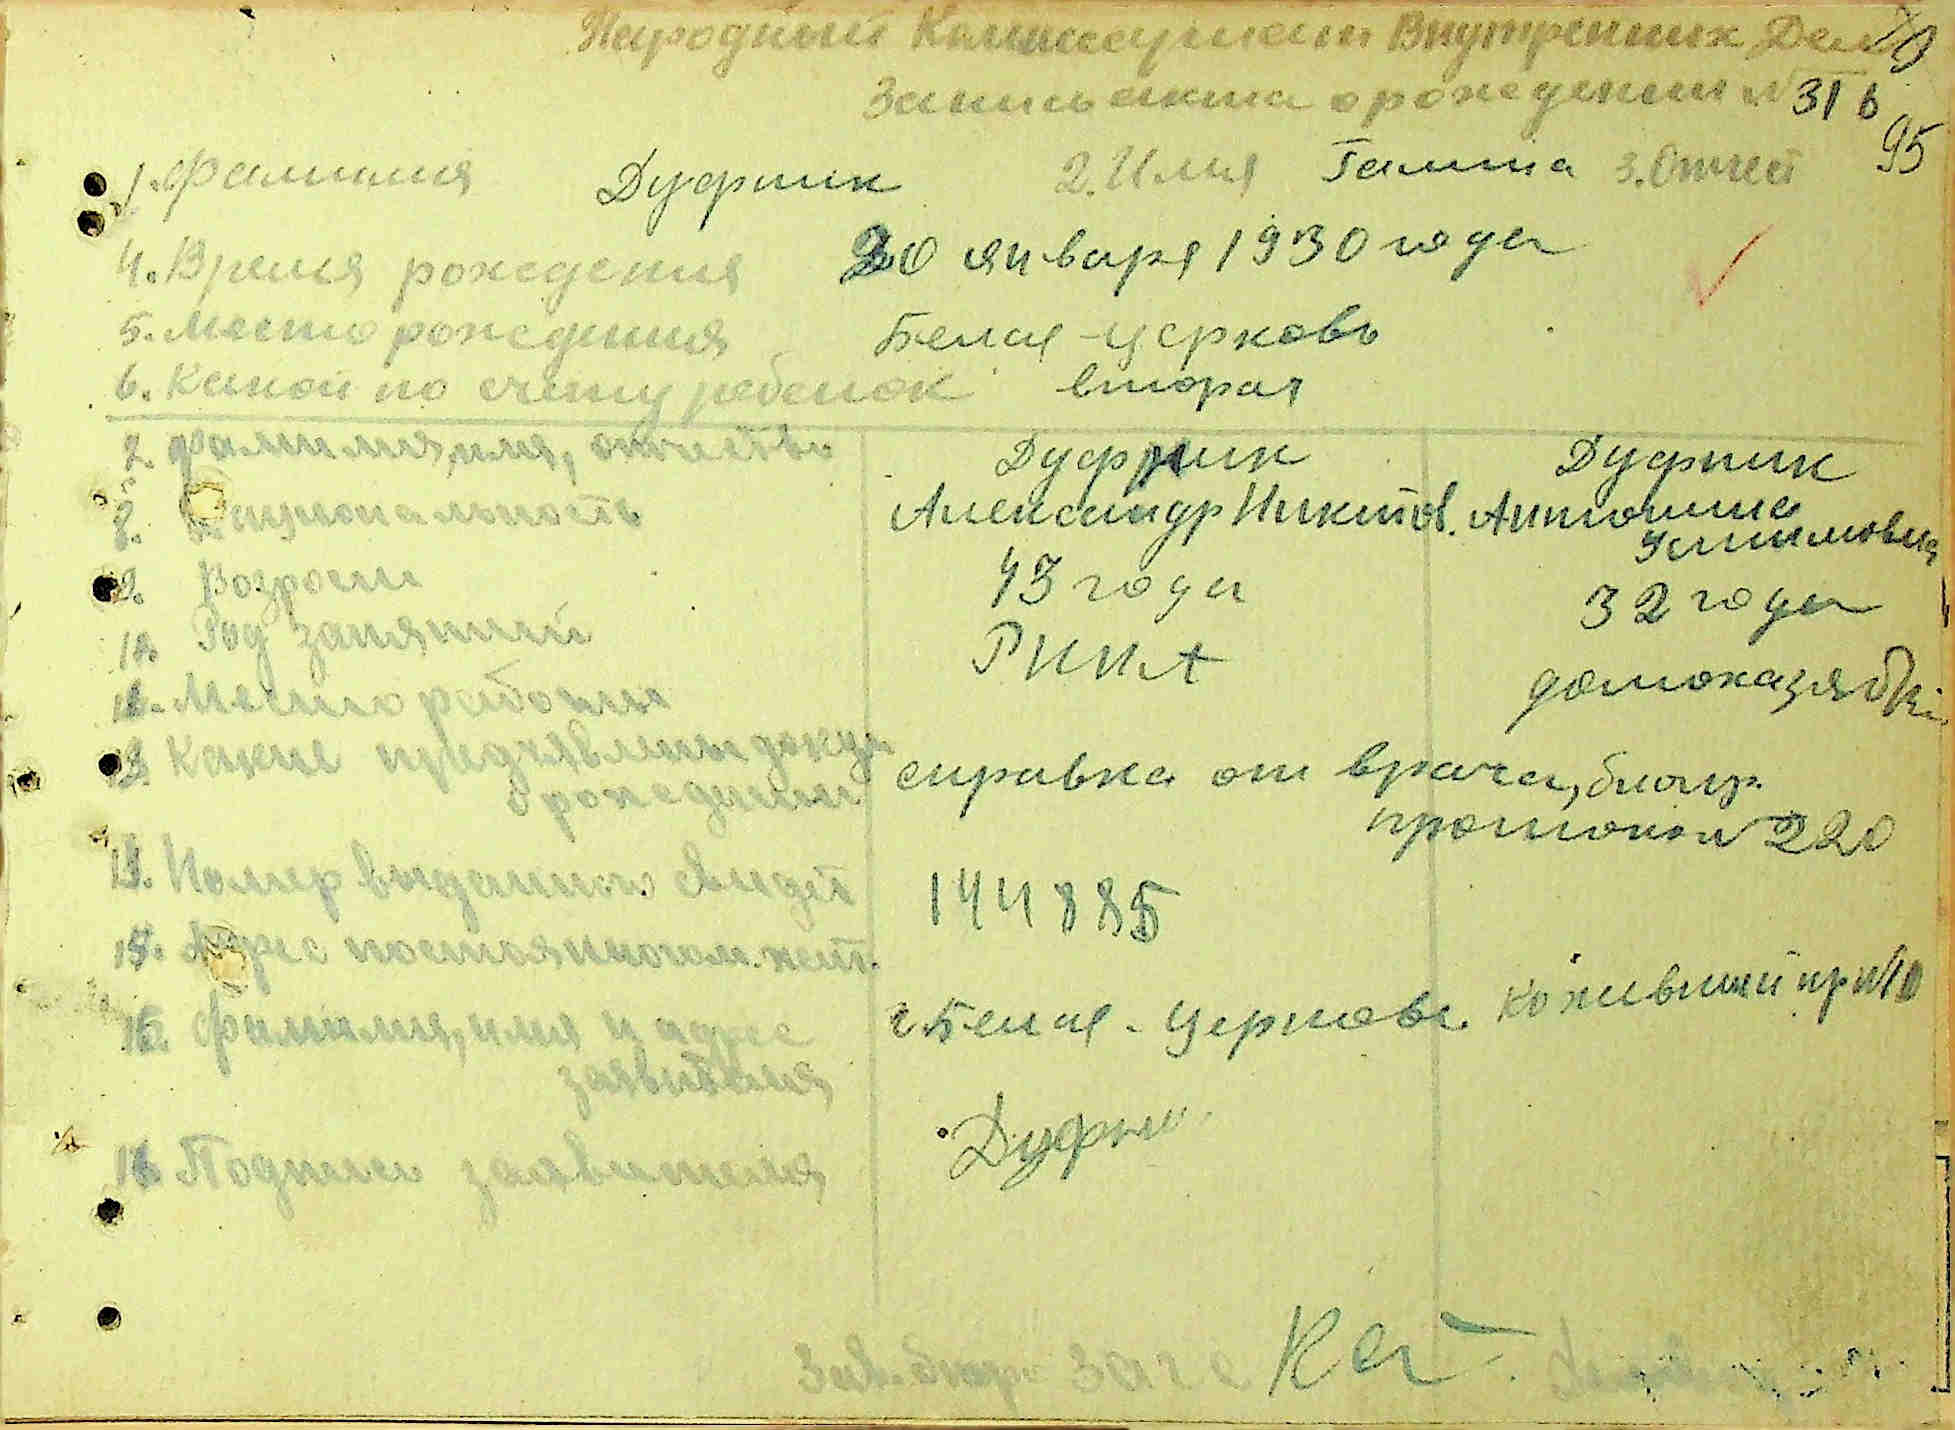 Народный Комиссариат Внутренних Дел
Запись акта о рождении № 31 б
95
1. Фамилия Дуфник 2. Имя Галина 3. Отчест
4. Время рождения 20 января 1930 года
5. Место рождения Белая-церковь
6. Какой по счету ребенок вторая
7. Фамилия, имя, отчество Дуфник Дуфник
Александр Никитов. Антонина
Устимовна
8. Национальность
9. Возраст 43 года 32 года
10. Род занятий РККА домохазяйк
11. Место работы
12. Какие предъявлены докум
о рождении
справка от врача,
протокол 220
Номер выданного свидет 144885
15. Адрес постоянного м. жит.
г. Белая-Церковь
16. Фамилия, имя и адрес
заявителя
Подписи заявителя Дуфник
Зав. бюро ЗАГС